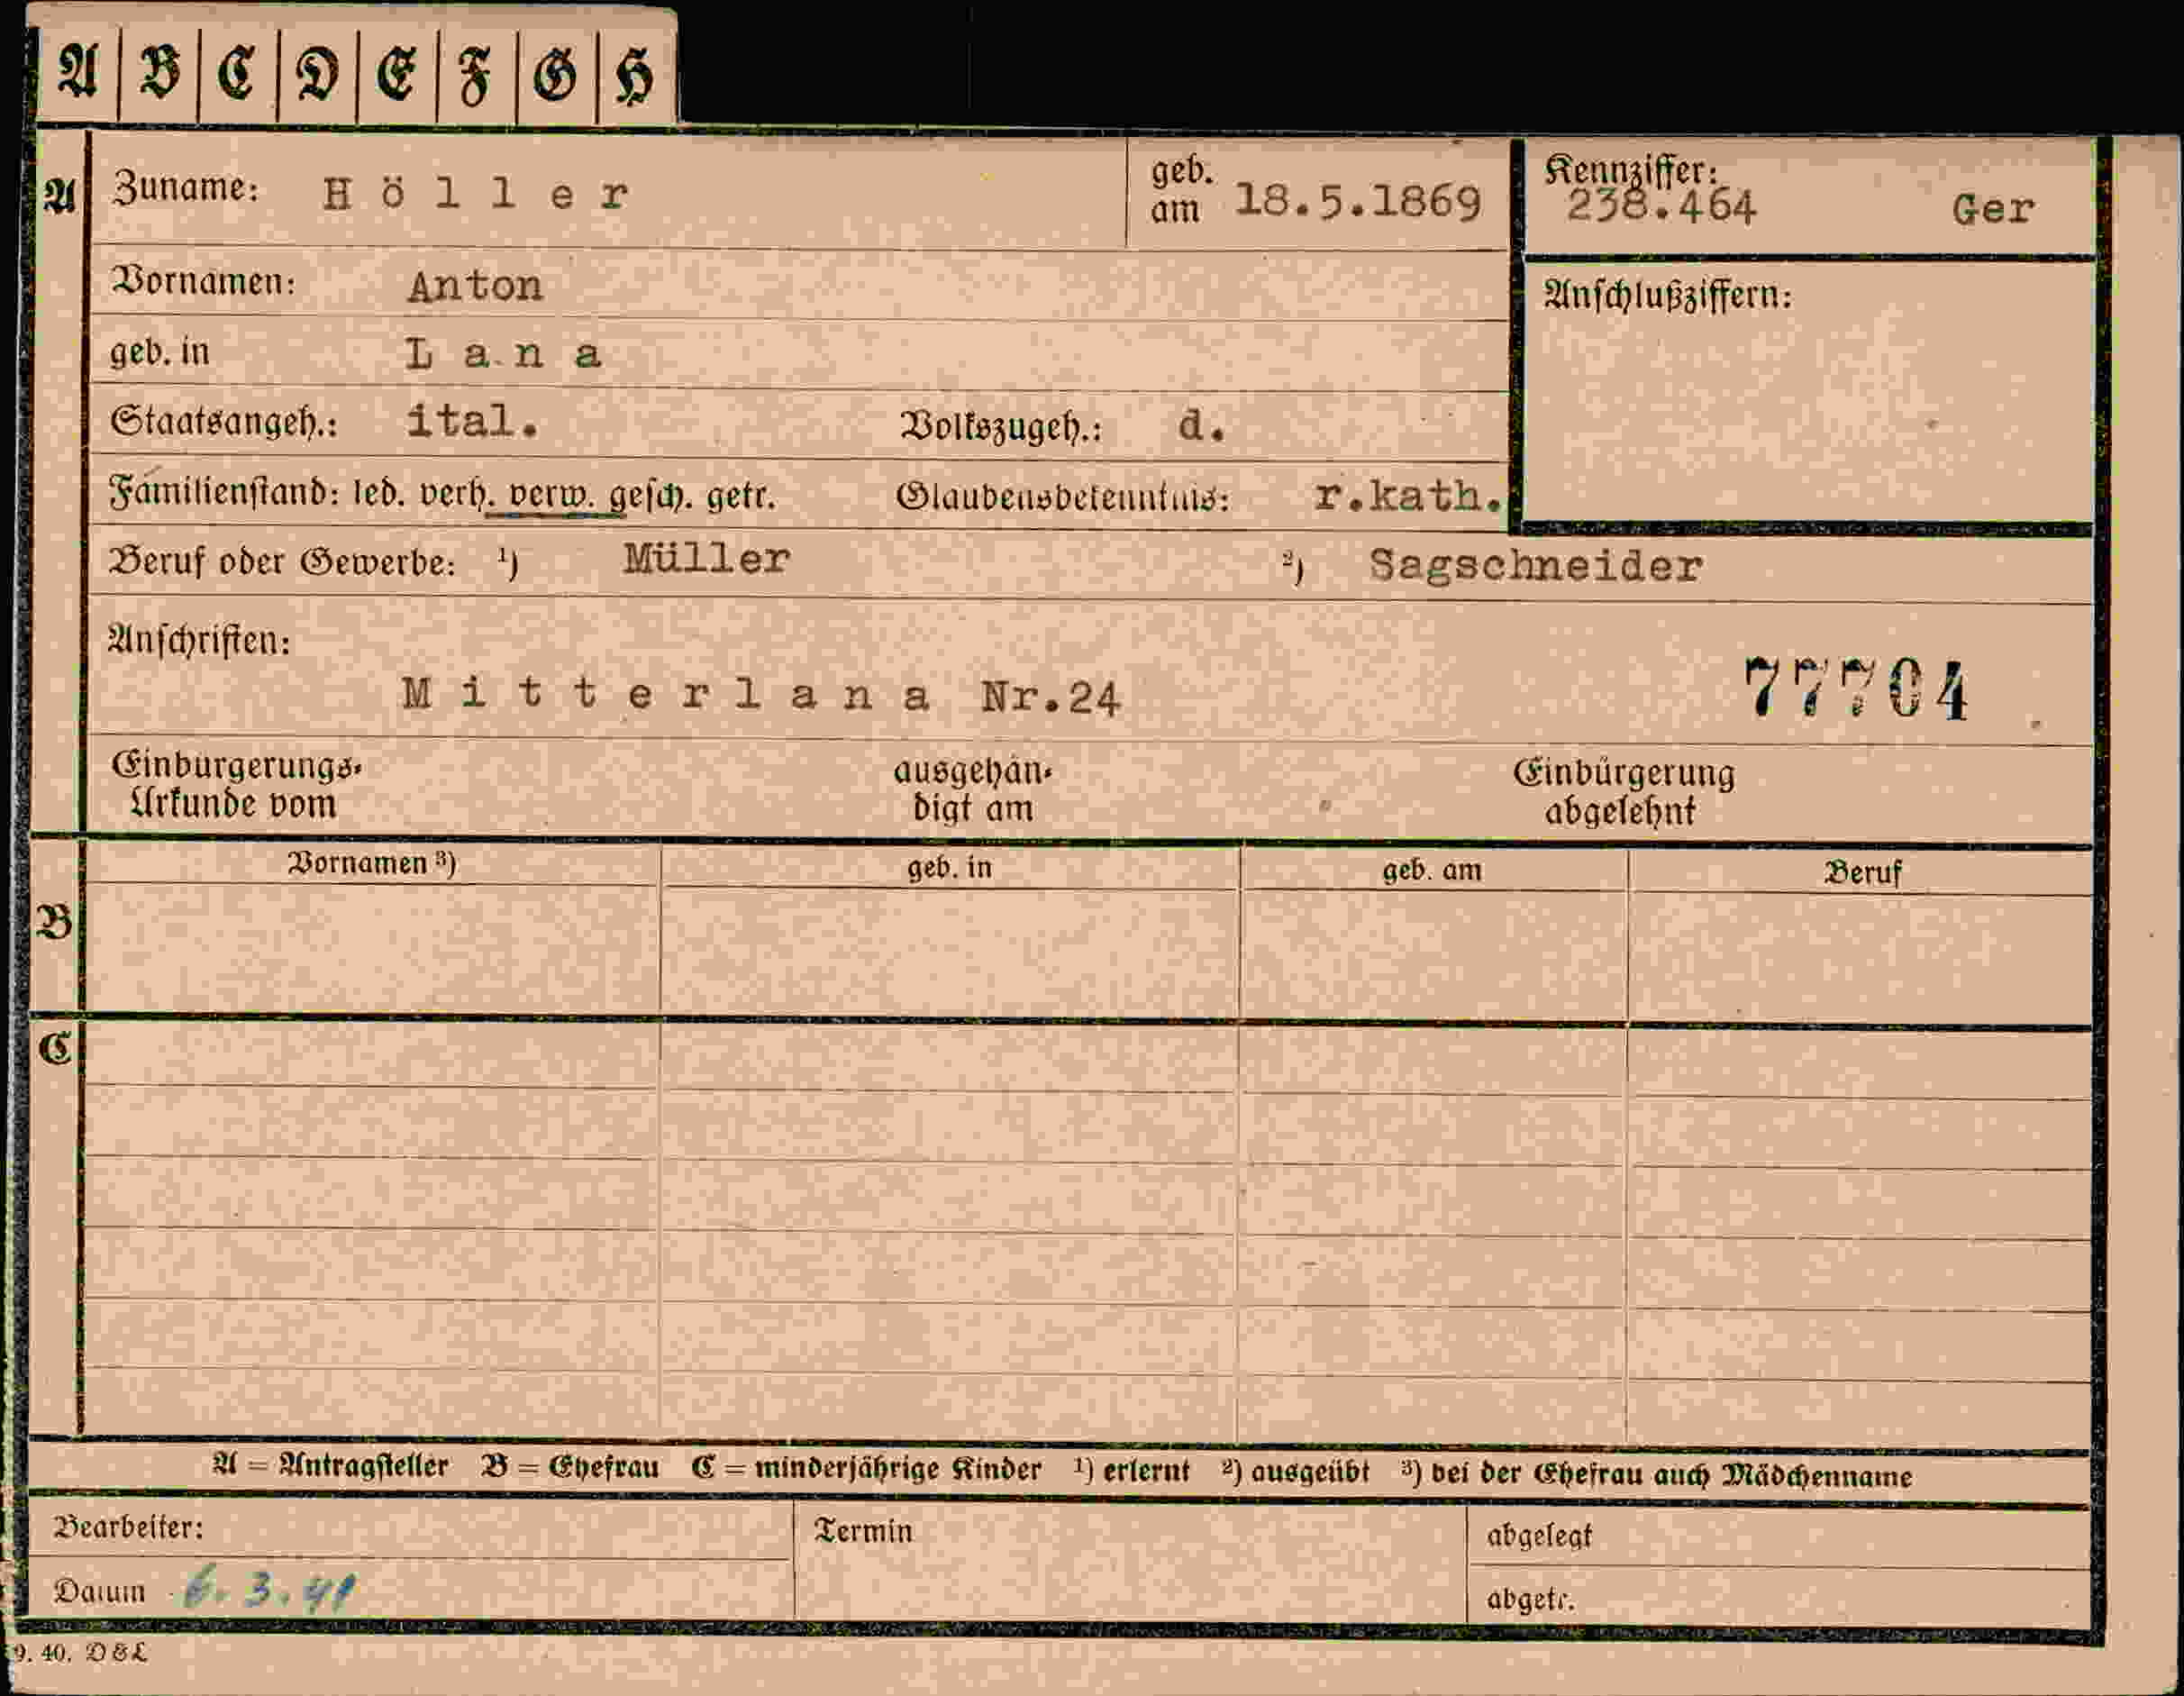 A B C D E F G H
A Zuname: Höller geb. am 18.5.1869 Kennziffer: 238.464 Ger
Vornamen: Anton Anschlußziffern:
geb. in Lana
Staatsangeh.: ital. Volkszugeh.: d.
Familienstand: led. verh. verw. gesch. getr. Glaubensbekenntnis: r.kath.
Beruf oder Gewerbe: ¹) Müller ²) Sagschneider
Anschriften:
Mitterlana Nr.24 77704
Einbürgerungs- ausgehän- Einbürgerung
Urkunde vom digt am abgelehnt
Vornamen ³) geb. in geb. am Beruf
B
C
A = Antragsteller B = Ehefrau C = minderjährige Kinder ¹) erlernt ²) ausgeübt ³) bei der Ehefrau auch Mädchenname
Bearbeiter: Termin abgelegt
Datum 6.3.41 abgetr.
9. 40. D&L